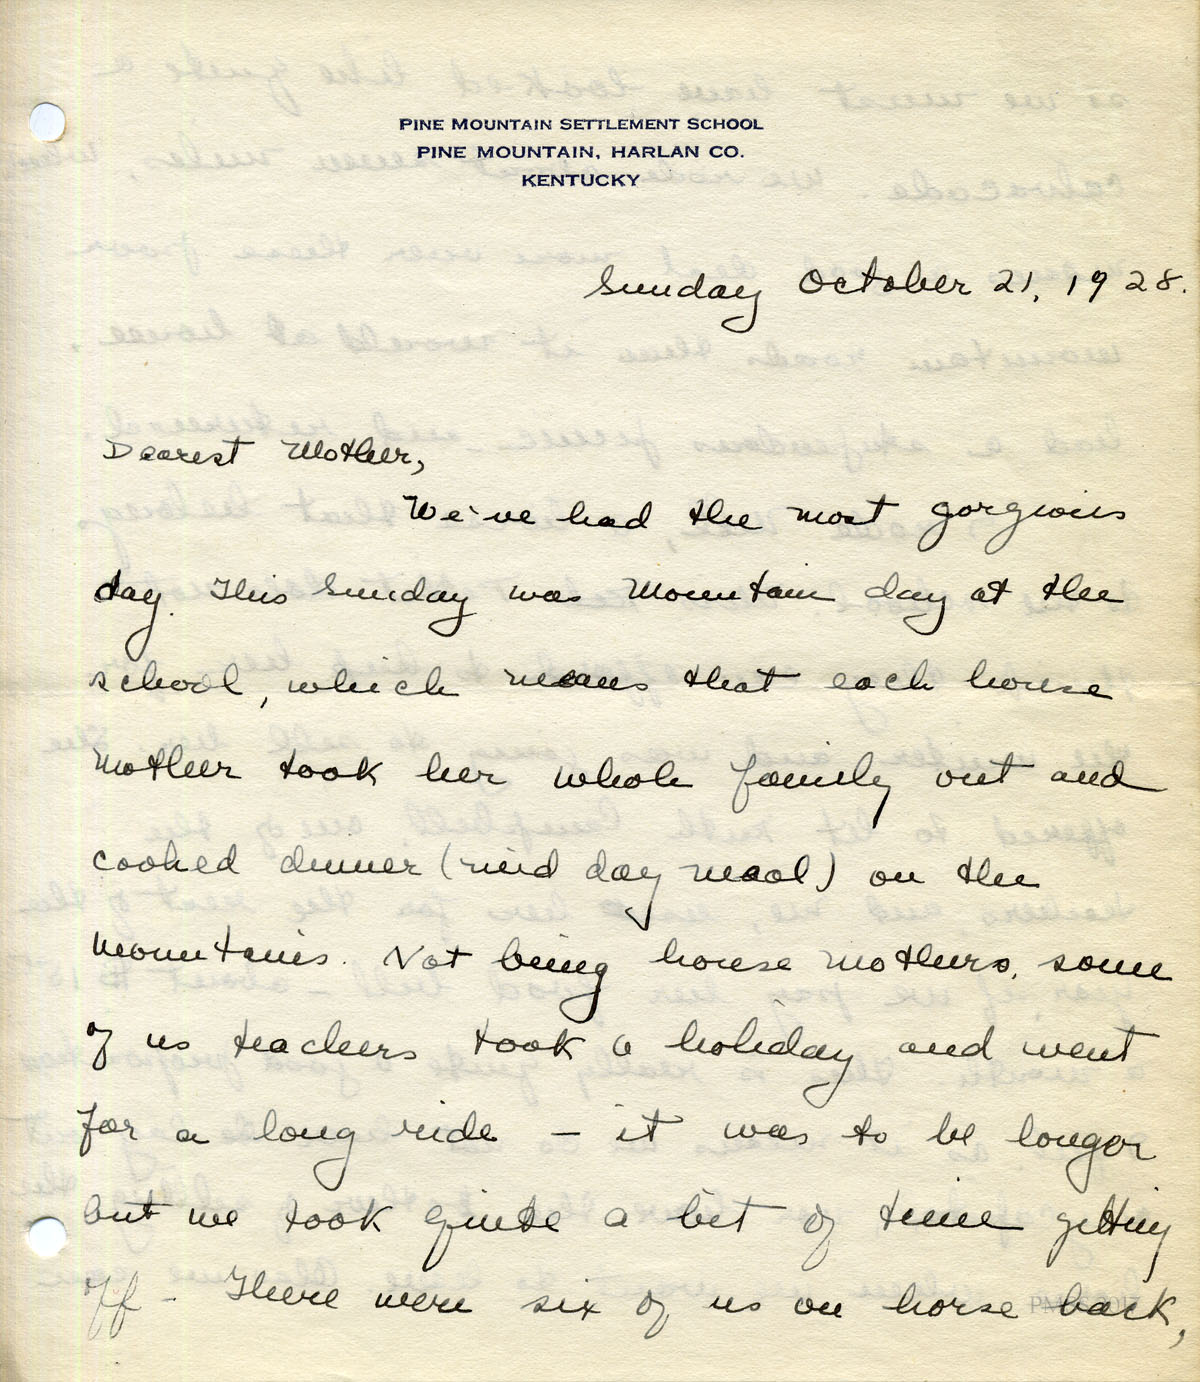 PINE MOUNTAIN SETTLEMENT SCHOOL
PINE MOUNTAIN, HARLAN CO.
KENTUCKY
Sunday October 21, 1928.
Dearest Mother,
We've had the most gorgious
day. This Sunday was Mountain day at the
school, which means that each house
mother took her whole family out and
cooked dinner (mid day meal) on the
mountains. Not being house mothers, some
of us teachers took a holiday and went
for a long ride – it was to be longer
but we took quite a bit of time getting
off – There were six of us on horse back,